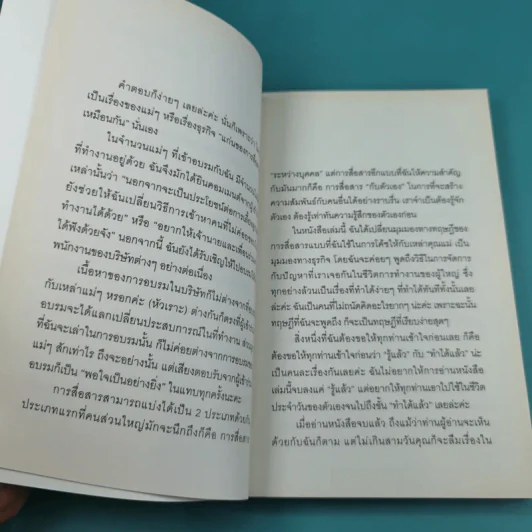 คำตอบก็ง่ายๆ เลยล่ะค่ะ นั่นก็เพราะว่า
เป็นเรื่องของแม่ๆ หรือเรื่องธุรกิจ "แก่นของการสื่อ
เหมือนกัน" นั่นเอง
ในจำนวนแม่ๆ ที่เข้าอบรมกับฉัน มี
ที่ทำงานอยู่ด้วย ฉันจึงมักได้ยินคอมเมนต์จาก
เหล่านั้นว่า "นอกจากจะเป็นประโยชน์ต่อการเลี้ยงลูก
ยังช่วยให้ฉันเปลี่ยนวิธีการเข้าหาคนที่ไม่ค่อยชอบ
ทำงานได้ด้วย" หรือ "อยากให้เจ้านายและเพื่อนร่วมงาน
ได้ฟังด้วยจัง" นอกจากนี้ ฉันยังได้รับเชิญให้ไปอบรม
พนักงานของบริษัทต่างๆ อย่างต่อเนื่อง
เนื้อหาของการอบรมในบริษัทก็ไม่ต่างจากที่อบรม
กับเหล่าแม่ๆ หรอกค่ะ (หัวเราะ) ต่างกันก็ตรงที่ผู้เข้า
อบรมจะได้แลกเปลี่ยนประสบการณ์ในที่ทำงาน ส่วน
ที่ฉันจะเล่าในการอบรมนั้น ก็ไม่ค่อยต่างจากการอบรมของ
แม่ๆ สักเท่าไร ถึงจะอย่างนั้น แต่เสียงตอบรับจากผู้เข้า
อบรมก็เป็น "พอใจเป็นอย่างยิ่ง" ในแทบทุกครั้งนะคะ
การสื่อสารสามารถแบ่งได้เป็น 2 ประเภทด้วยกัน
ประเภทแรกที่คนส่วนใหญ่มักจะนึกถึงก็คือ การสื่อสาร
"ระหว่างบุคคล" แต่การสื่อสารอีกแบบที่ฉันให้ความสำคัญ
กับมันมากก็คือ การสื่อสาร "กับตัวเอง" ในการที่จะสร้าง
ความสัมพันธ์กับคนอื่นได้อย่างราบรื่น เราจำเป็นต้องรู้จัก
ตัวเอง ต้องรู้เท่าทันความรู้สึกของตัวเองก่อน
ในหนังสือเล่มนี้ ฉันได้เปลี่ยนมุมมองทางทฤษฎีของ
การสื่อสารแบบที่ฉันใช้ในการโค้ชให้กับเหล่าคุณแม่ เป็น
มุมมองทางธุรกิจ โดยฉันจะค่อยๆ พูดถึงวิธีในการจัดการ
กับปัญหาที่เราเจอกันในชีวิตการทำงานของผู้ใหญ่ ซึ่ง
ทุกอย่างล้วนเป็นเรื่องที่ทำได้ง่ายๆ ที่ทำได้ทันทีทั้งนั้นเลย
ล่ะค่ะ ฉันเป็นคนที่ไม่ถนัดคิดอะไรยากๆ น่ะค่ะ เพราะฉะนั้น
ทฤษฎีที่ฉันจะพูดถึง ก็จะเป็นทฤษฎีที่เรียบง่ายสุดๆ
สิ่งหนึ่งที่ฉันต้องขอให้ทุกท่านเข้าใจก่อนเลย ก็คือ
ต้องขอให้ทุกท่านเข้าใจก่อนว่า "รู้แล้ว" กับ "ทำได้แล้ว" น่ะ
เป็นคนละเรื่องกันเลยค่ะ ฉันไม่อยากให้การอ่านหนังสือ
เล่มนี้จบลงแค่ "รู้แล้ว" แต่อยากให้ทุกท่านเอาไปใช้ในชีวิต
ประจำวันของตัวเองจนไปถึงขั้น "ทำได้แล้ว" เลยล่ะค่ะ
เมื่ออ่านหนังสือจบแล้ว ถึงแม้ว่าท่านผู้อ่านจะเห็น
ด้วยกับฉันก็ตาม แต่ไม่เกินสามวันคุณก็จะลืมเรื่องใน